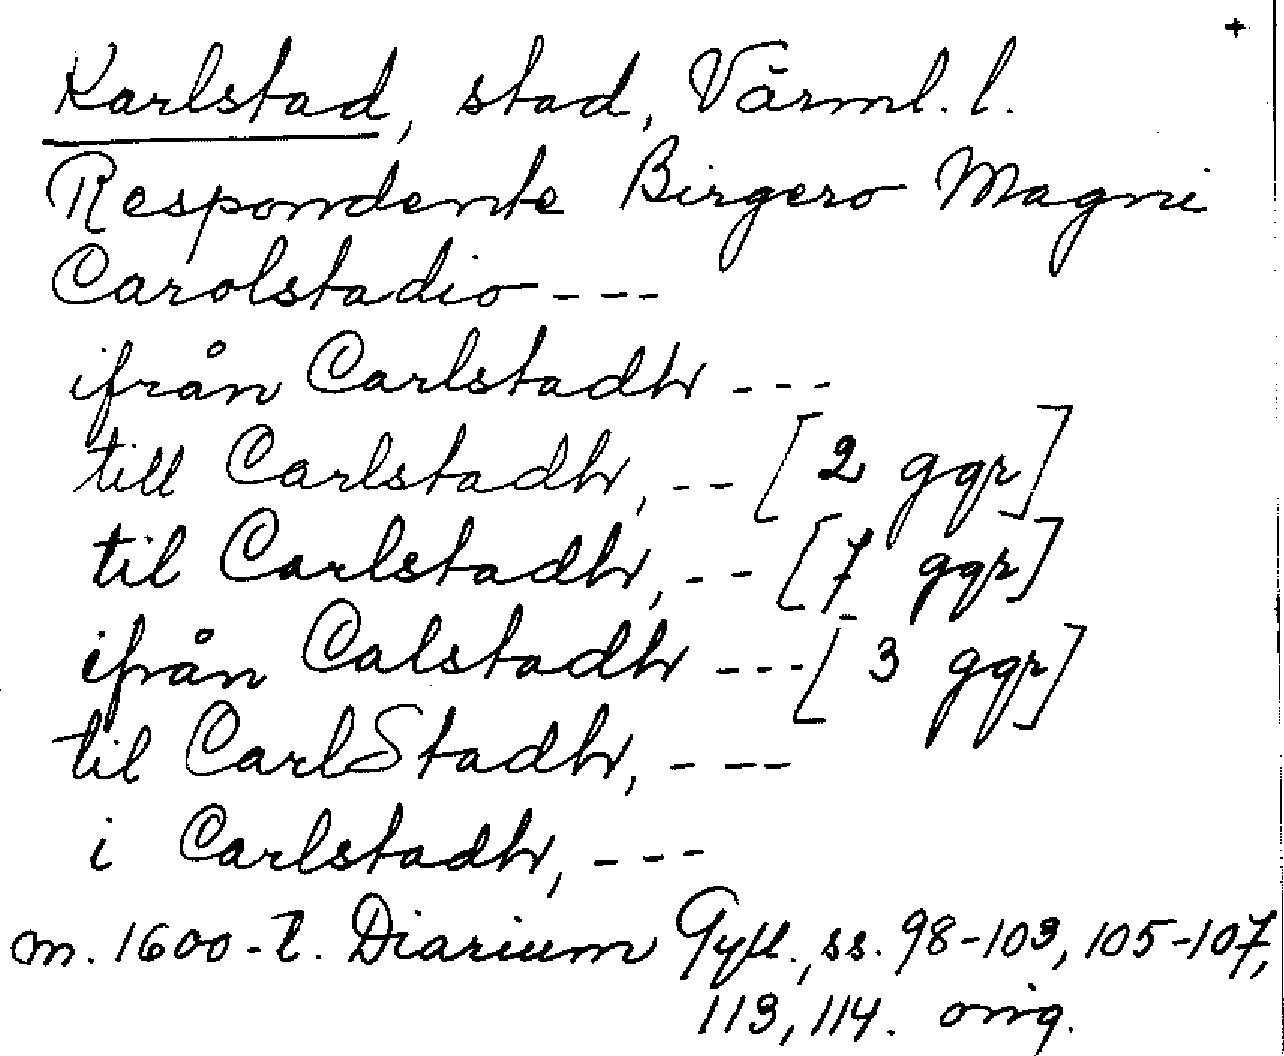 +
Karlstad, stad, Värml. l.
Respondente Birgero Magni
Carolstadio ---
ifrån Carlstadh ---
till Carlstadh, -- [2 ggr]
til Carlstadh, -- [7 ggr]
ifrån Calstadh --- [3 ggr]
til CarlStadh, ---
i Carlstadh, ---
m. 1600-t. Diarium Gyll., ss. 98-103, 105-107,
113, 114. orig.